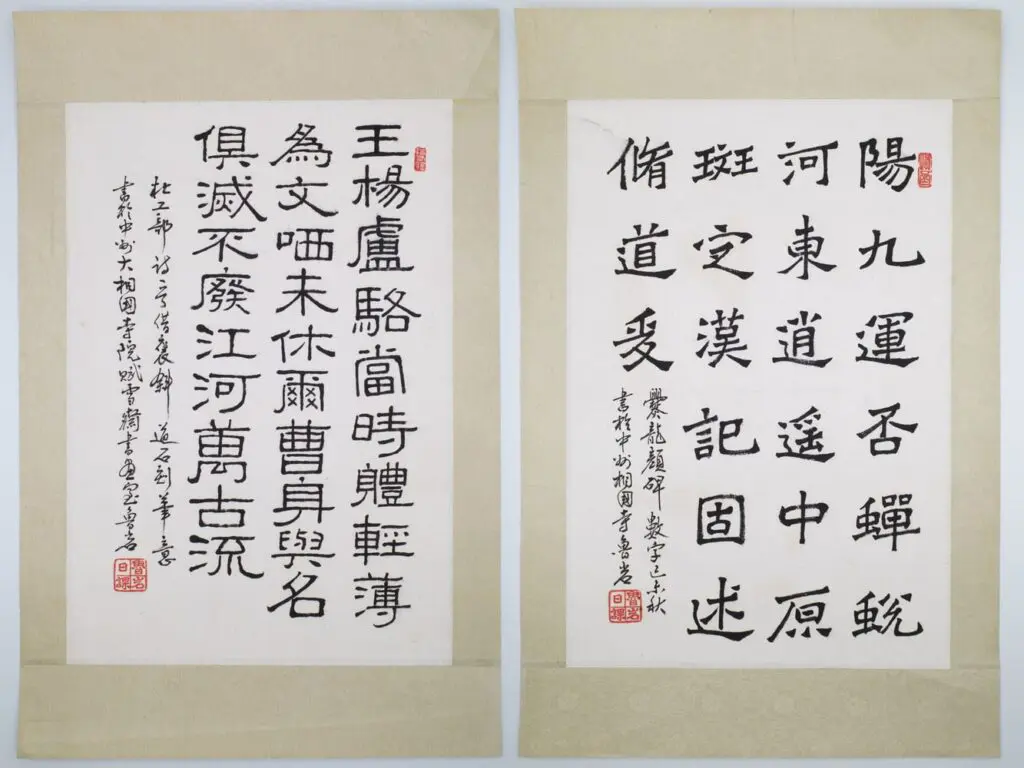 王楊盧駱當時體輕薄
為文哂未休爾曹身與名
俱滅不廢江河萬古流
杜工部詩借褒斜道石刻筆意
書於中州大相國寺院賦雪齋書畫室魯岩
陽九運否蟬蛻
河東逍遥中原
斑定漢記固述
脩道爰
爨龍顏碑數字己未秋
書於中州相國寺魯岩